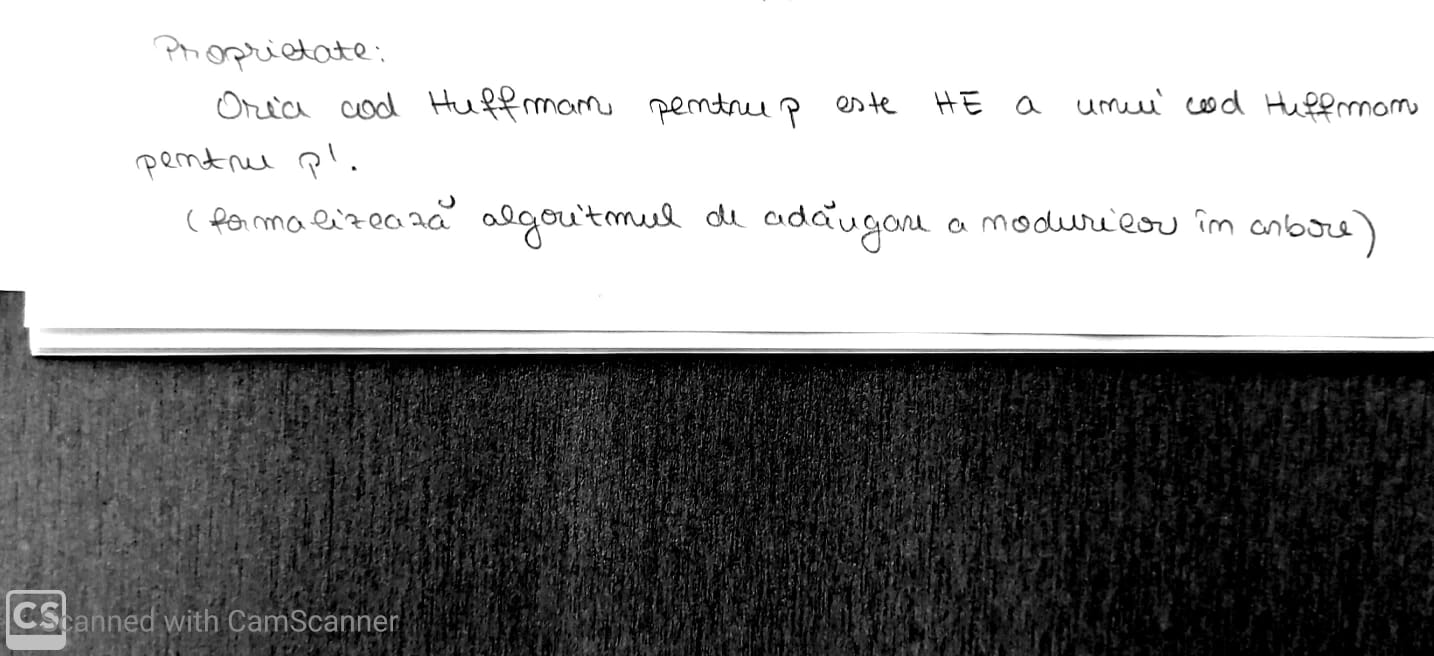 Proprietate:
Orice cod Huffman pentru p este HE a unui cod Huffman
pentru p'.
(formalizează algoritmul de adăugare a nodurilor în arbore)
CS Scanned with CamScanner